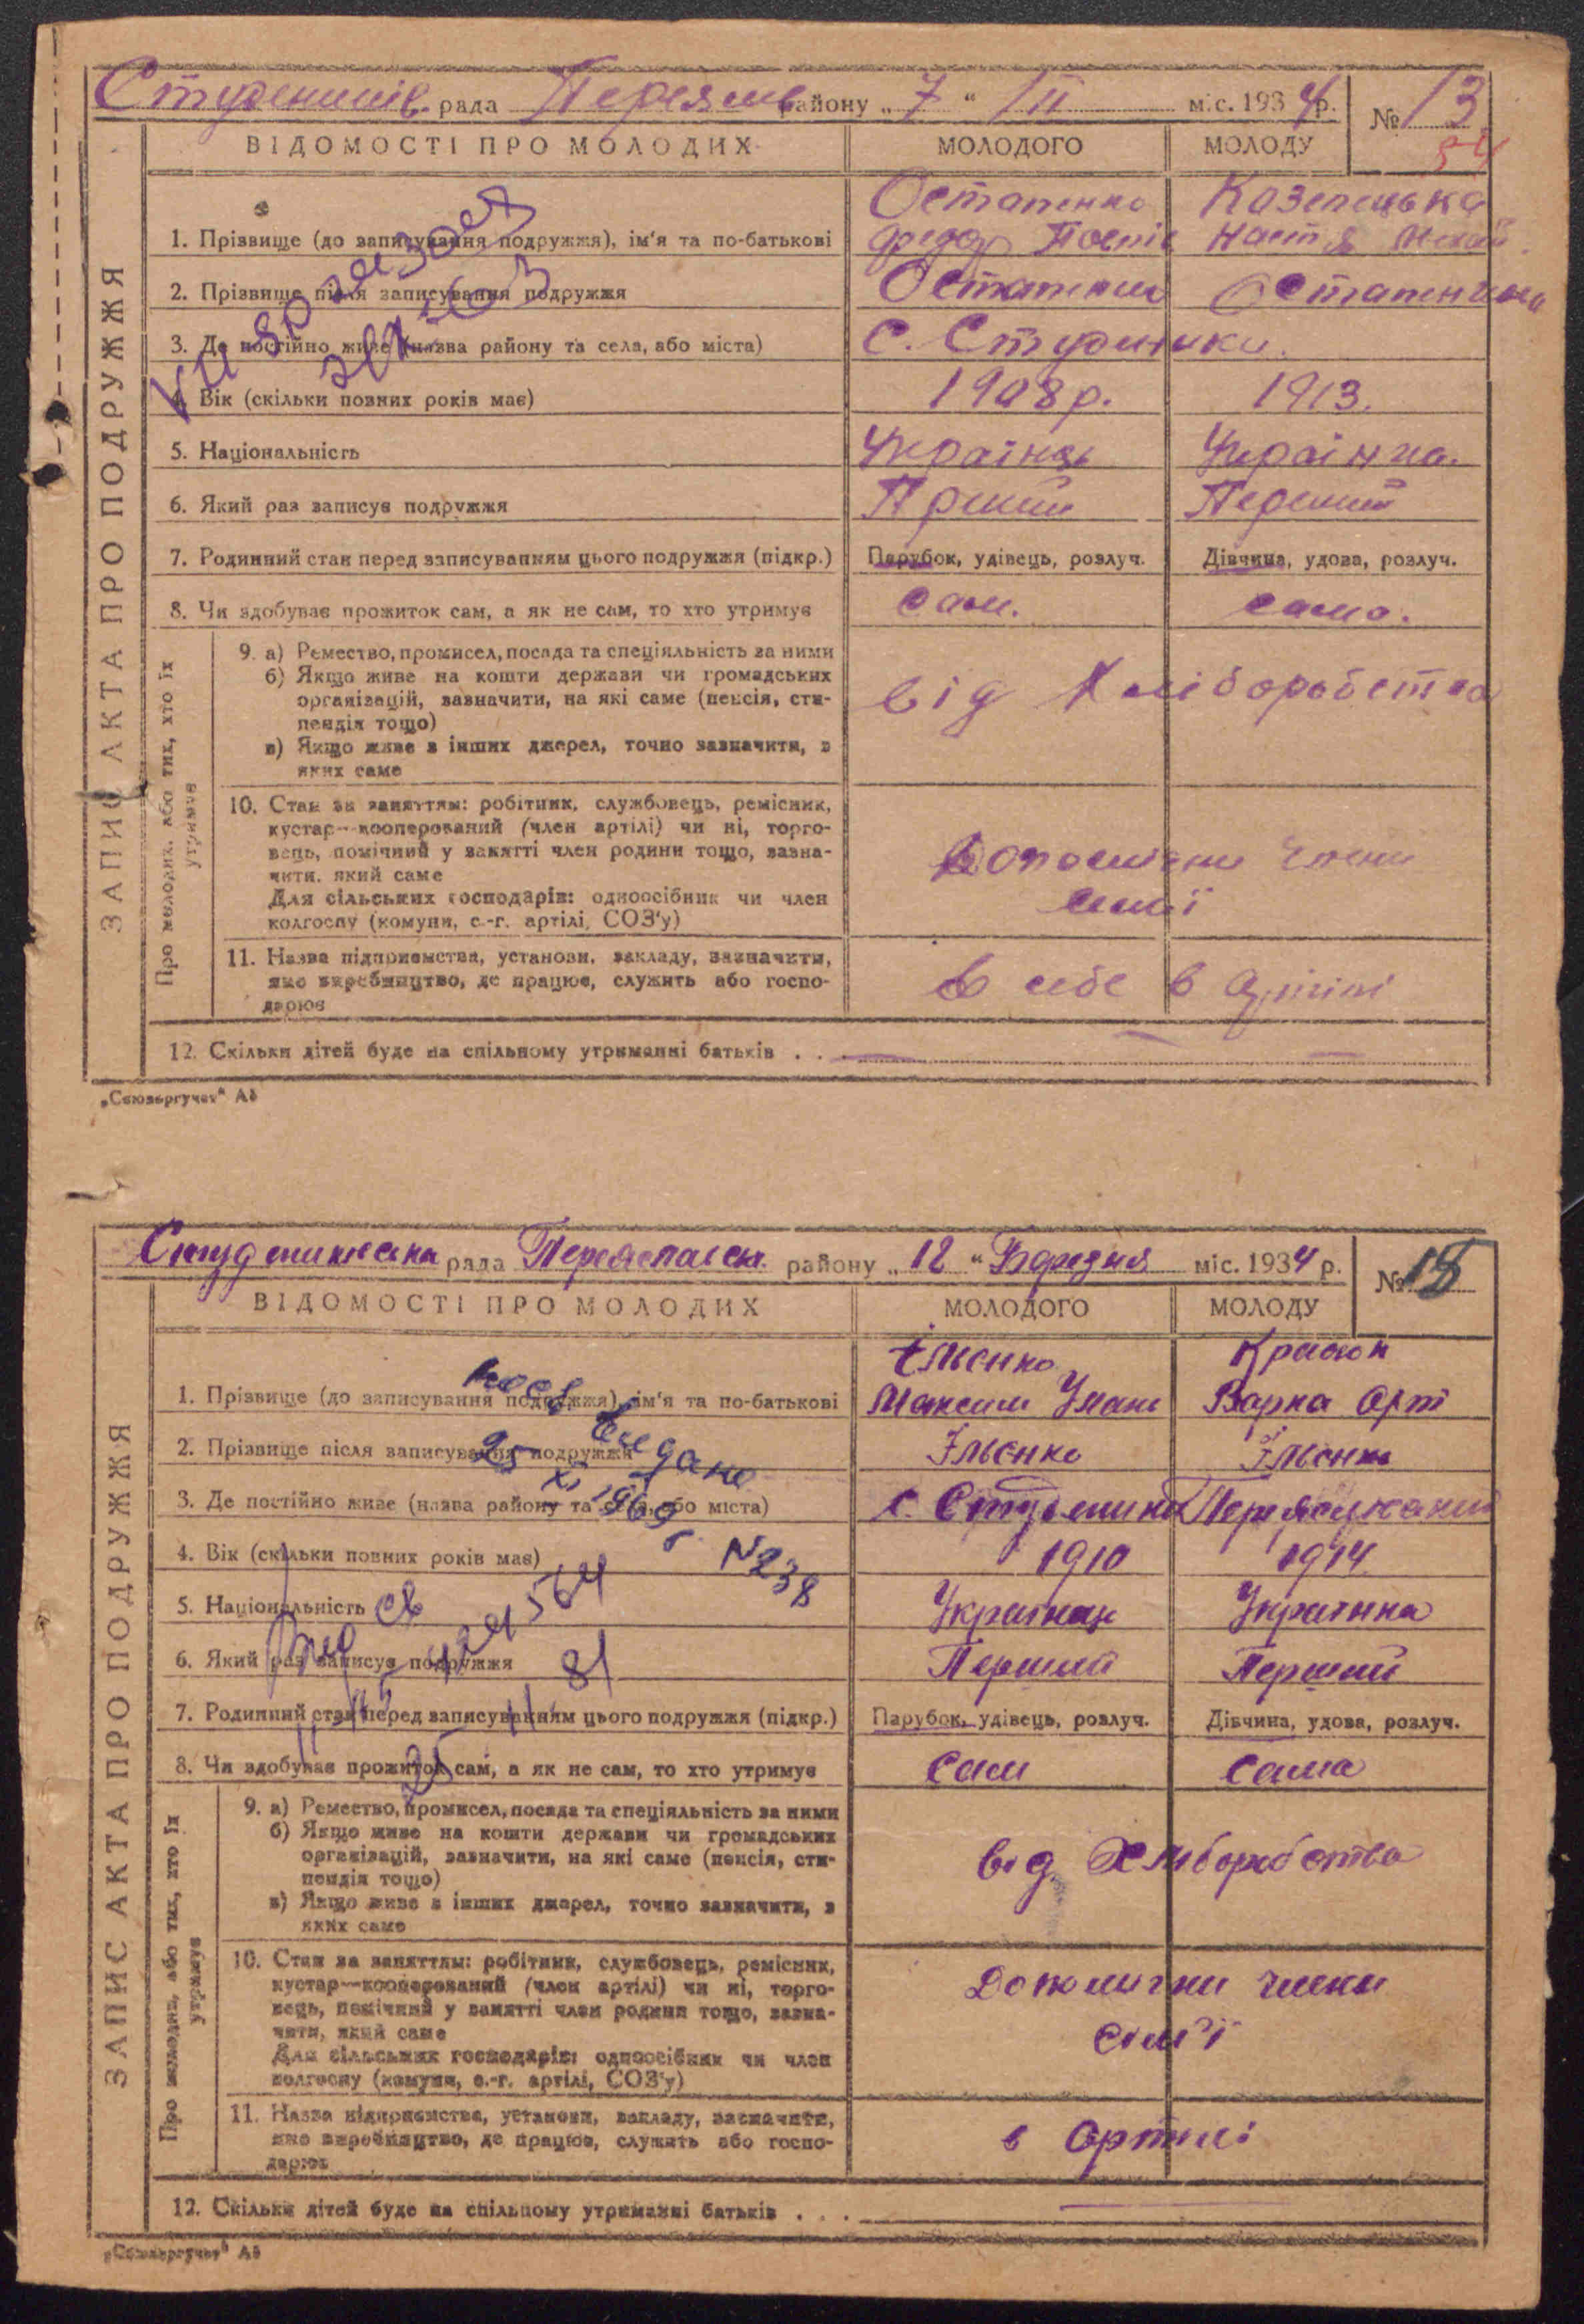 Студеників. рада Переяслв району „ 7 “ III міс. 1934 р. № 13
54
ВІДОМОСТІ ПРО МОЛОДИХ МОЛОДОГО МОЛОДУ
ЗАПИС АКТА ПРО ПОДРУЖЖЯ
1. Прізвище (до записування подружжя), ім'я та по-батькові
Остапенко
Федор
Козелецька
Настя
2. Прізвище після записування подружжя Остапенко
3. Де постійно живе (назва району та села, або міста) с. Студиники.
4. Вік (скільки повних років має) 1908 р. 1913.
5. Національність Українець Українка.
6. Який раз записує подружжя Перший
7. Родинний стан перед записуванням цього подружжя (підкр.) Парубок, удівець, розлуч. Дівчина, удова, розлуч.
8. Чи здобуває прожиток сам, а як не сам, то хто утримує сам. сама.
Про молодих, або тих, хто їх утримує
9. а) Ремество, промисел, посада та спеціяльність за ними
б) Якщо живе на кошти держави чи громадських
організацій, зазначити, на які саме (пенсія, сти-
пендія тощо)
в) Якщо живе з інших джерел, точно зазначити, з
яких саме
від Хліборобства
10. Стан за заняттям: робітник, службовець, ремісник,
кустар—кооперований (член артілі) чи ні, торго-
вець, помічний у занятті член родини тощо, зазна-
чити, який саме
Для сільських господарів: одноосібник чи член
колгоспу (комуни, с.-г. артілі, СОЗ'у)
Допомічни члени
семї
11. Назва підприємства, установи, закладу, зазначити,
яке виробництво, де працює, служить або госпо-
дарює
в себе в Артілі
12. Скільки дітей буде на спільному утриманні батьків . . .
„Союзоргучет“ А5
Студениківська рада Переяславськ. району „ 12 “ Березня міс. 1934 р. № 18
ВІДОМОСТІ ПРО МОЛОДИХ МОЛОДОГО МОЛОДУ
ЗАПИС АКТА ПРО ПОДРУЖЖЯ
1. Прізвище (до записування подружжя), ім'я та по-батькові
Ільєнко
Максим
Варка Арт
2. Прізвище після записування подружжя Ільєнко Ільєнко
видано
25 XI 1969 р
N238
3. Де постійно живе (назва району та села, або міста) с. Студеники
4. Вік (скільки повних років має) 1910 1914
5. Національність Українець Українка
6. Який раз записує подружжя Перший Перший
7. Родинний стан перед записуванням цього подружжя (підкр.) Парубок, удівець, розлуч. Дівчина, удова, розлуч.
8. Чи здобуває прожиток сам, а як не сам, то хто утримує Сам Сама
Про молодих, або тих, хто їх утримує
9. а) Ремество, промисел, посада та спеціяльність за ними
б) Якщо живе на кошти держави чи громадських
організацій, зазначити, на які саме (пенсія, сти-
пендія тощо)
в) Якщо живе з інших джерел, точно зазначити, з
яких саме
від Хліборобства
10. Стан за заняттям: робітник, службовець, ремісник,
кустар—кооперований (член артілі) чи ні, торго-
вець, помічний у занятті член родини тощо, зазна-
чити, який саме
Для сільських господарів: одноосібник чи член
колгоспу (комуни, с.-г. артілі, СОЗ'у)
Допомічни члени
сім'ї
11. Назва підприємства, установи, закладу, зазначити,
яке виробництво, де працює, служить або госпо-
дарює
в Артилі
12. Скільки дітей буде на спільному утриманні батьків . . .
„Союзоргучет“ А5